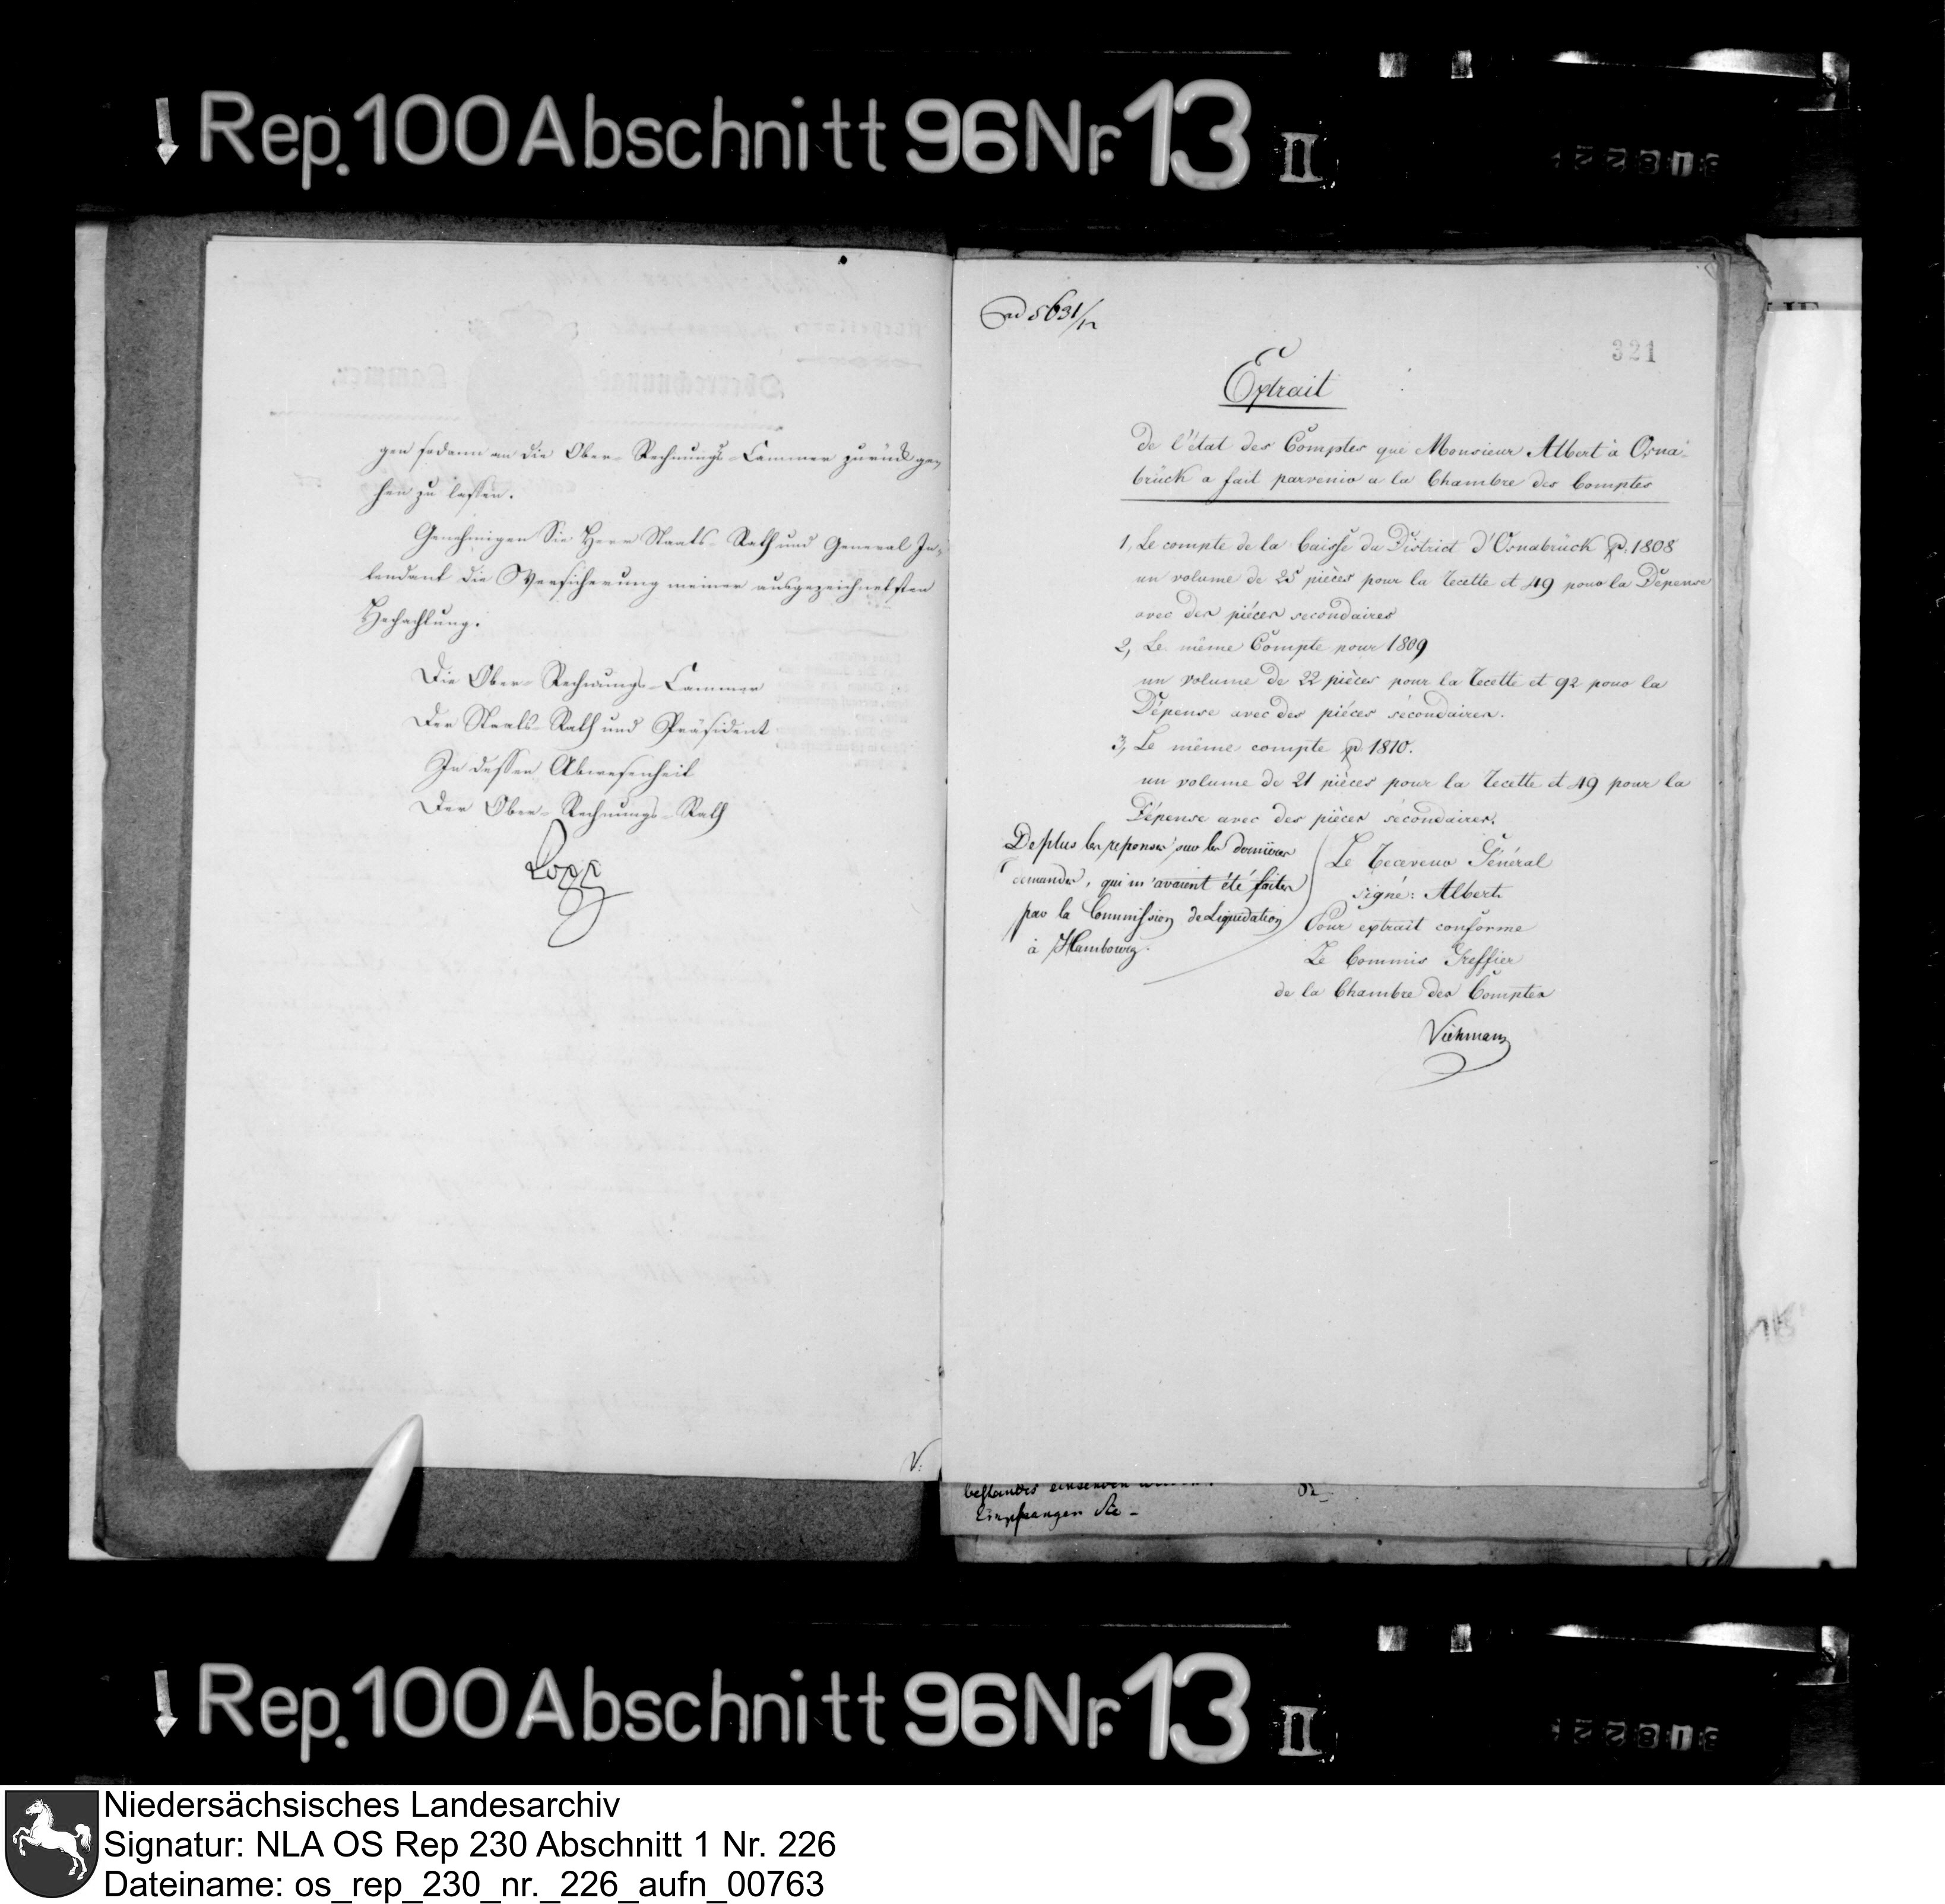 Rep. 100 Abschnitt 96 Nr. 13 II
gen sodann an die Ober-Rechnungs-Cammer zurück ge-
hen zu lassen.
Genehmigen Sie Herr Staats-Rath und General In-
tendant die Versicherung meiner ausgezeichnetsten
Hochachtung.
Die Ober-Rechnungs-Cammer
Der Staats-Rath und Präsident
In dessen Abwesenheit
Der Ober-Rechnungs-Rath
V:
ad 5631/12
321
Extrait
De l'état des Comptes que Monsieur Albert à Osna-
brück a fait parvenir a la Chambre des Comptes
1, Le compte de la Caisse du District d'Osnabrück p. 1808
un volume de 25 pièces pour la recette et 49 pour la Dépense
avec des piéces secondaires
2, Le même Compte pour 1809
un volume de 22 pièces pour la recette et 92 pour la
Dépense avec des piéces sécondaires.
3, Le même compte p. 1810.
un volume de 21 pièces pour la recette et 49 pour la
Dépense avec des pièces sécondaires.
De plus les reponses sur les dernieres
demandes, qui m'avaient été faites
par la Commission de Liquidation
à Hambourg.
Le receveur Général
signé: Albert.
Pour extrait conforme
Le Commis Greffier
de la Chambre des Comptes
Viehmann
Empfangen Sie -
Rep. 100 Abschnitt 96 Nr. 13 II
Niedersächsisches Landesarchiv
Signatur: NLA OS Rep 230 Abschnitt 1 Nr. 226
Dateiname: os_rep_230_nr._226_aufn_00763